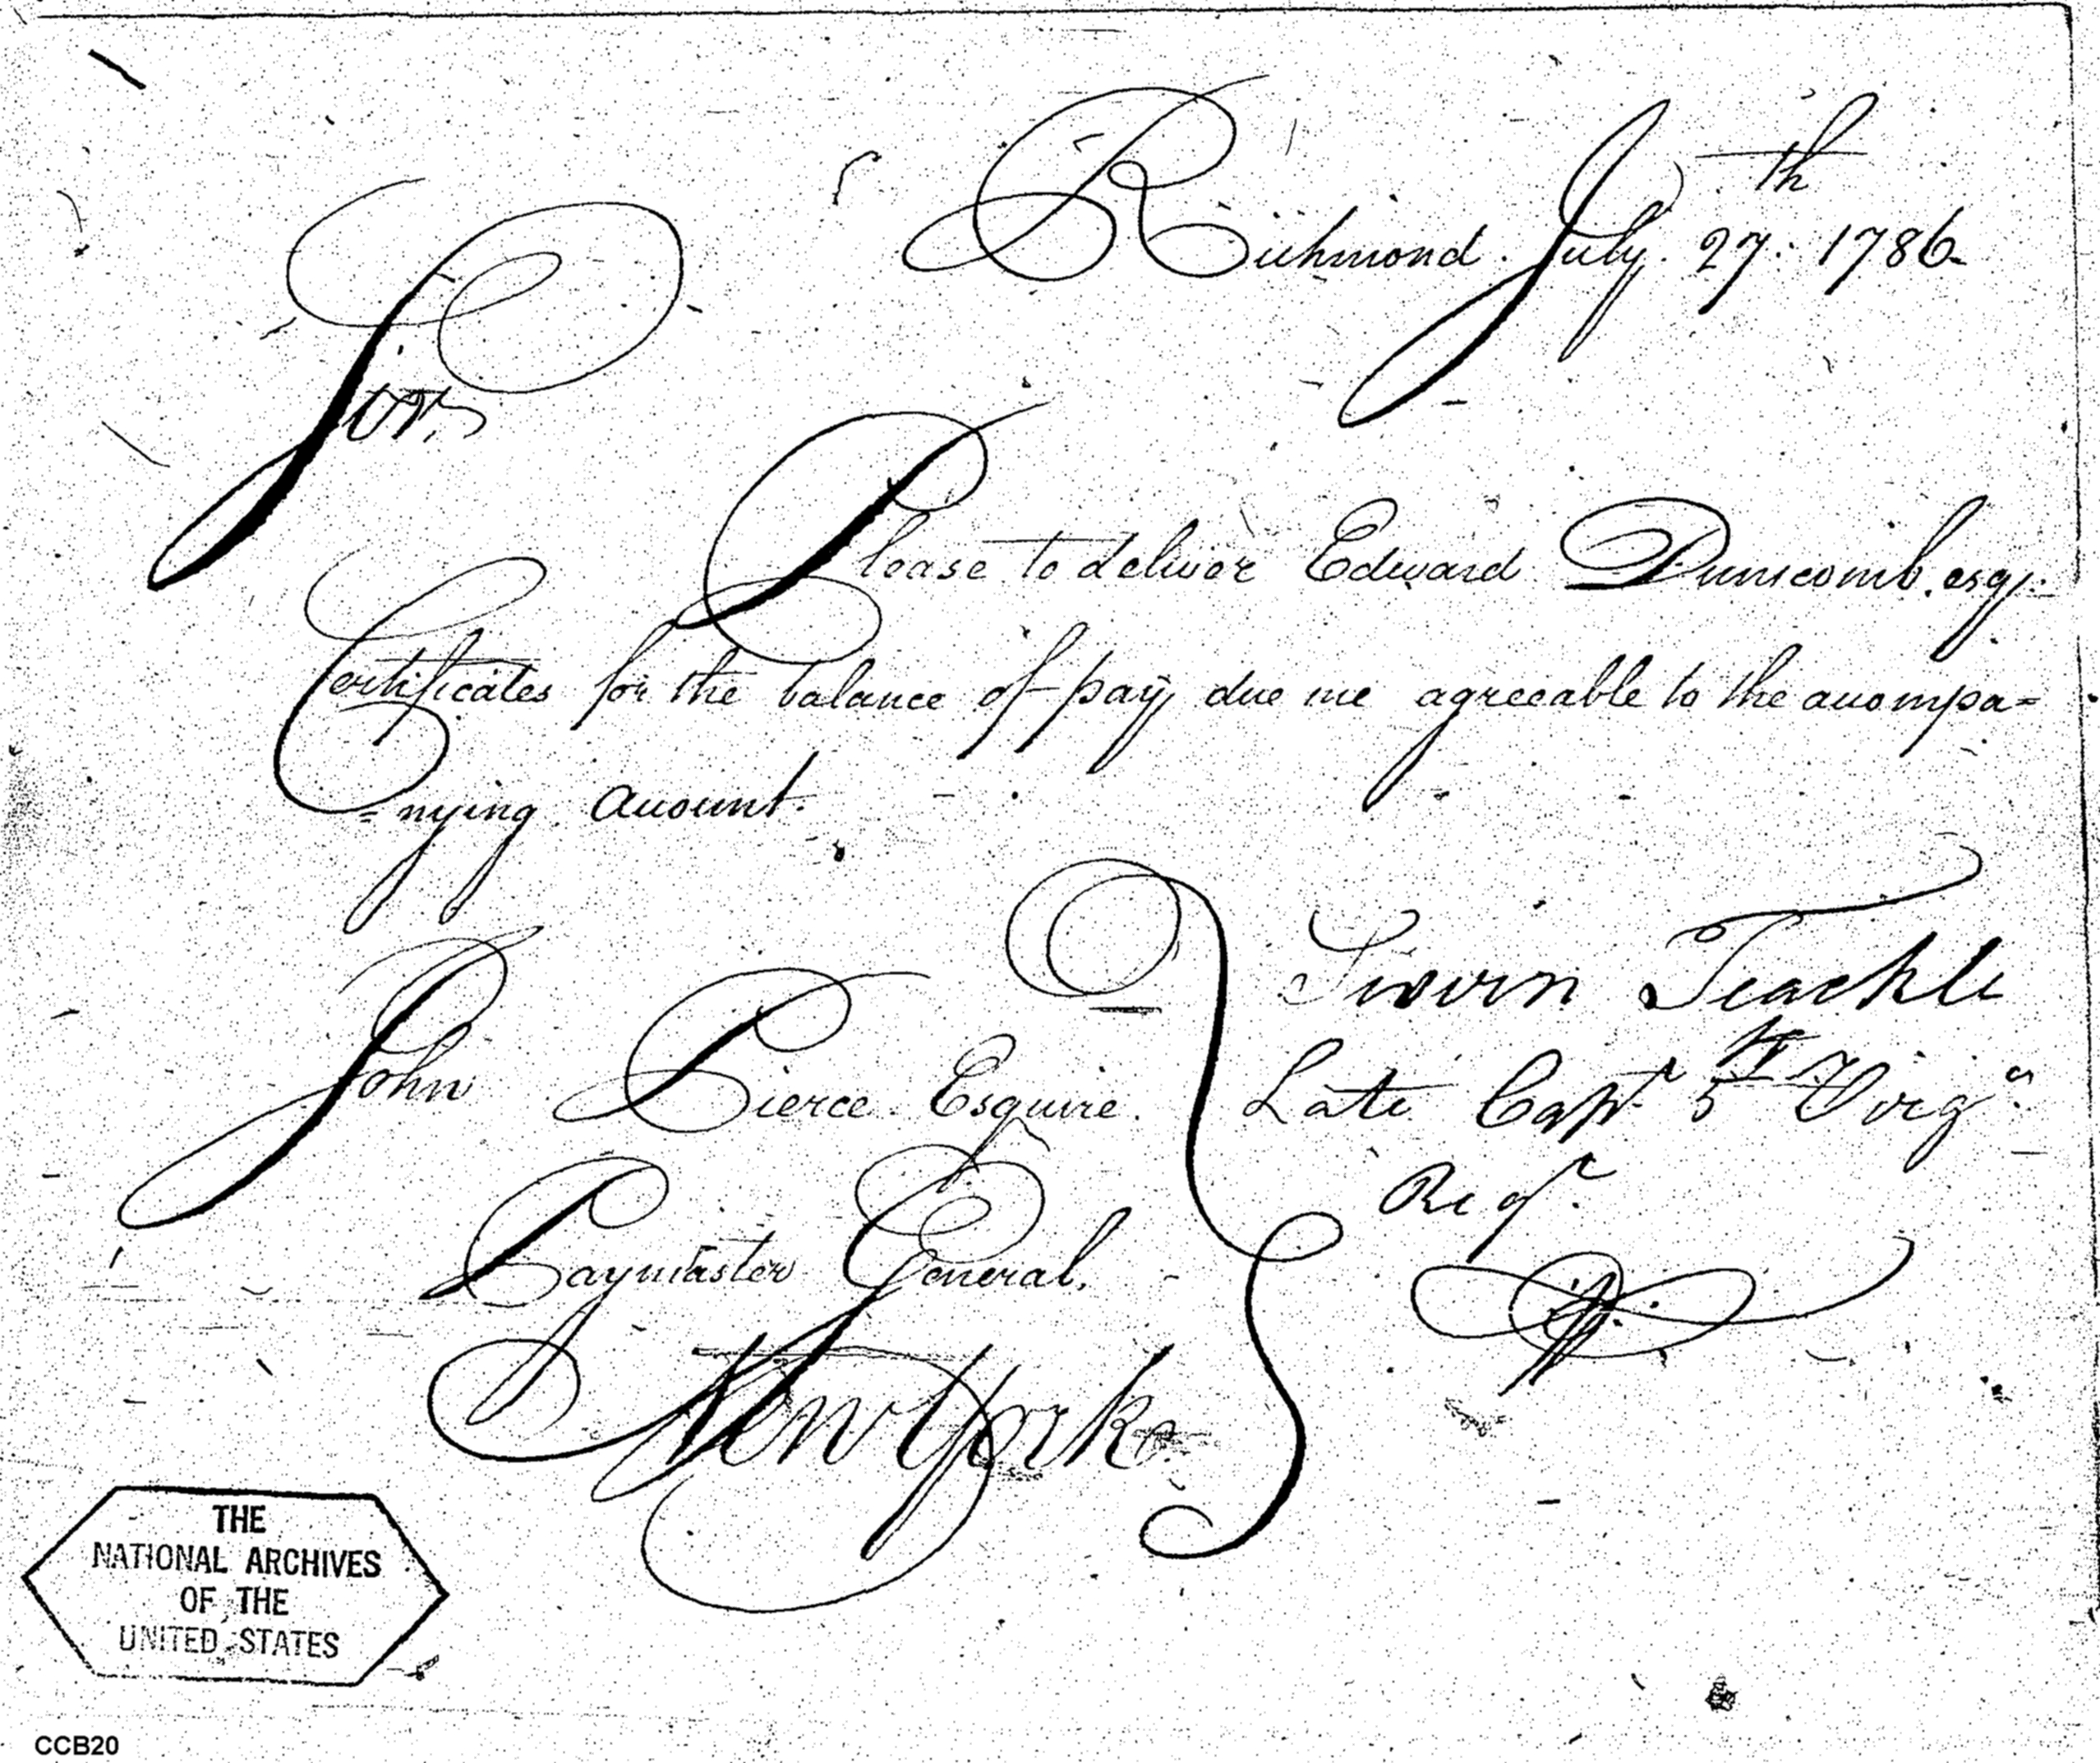 Richmond. July. 27th: 1786
Sir,
Please to deliver Edward Dunscomb. esqr.
Certificates for the balance of pay due me agreeable to the accompa=
=nying Account.
Sevorn Teackle
John Pierce Esquire. Late Capt 5th Virga
Regt.
Paymaster General.
New York
THE
NATIONAL ARCHIVES
OF THE
UNITED STATES
CCB20